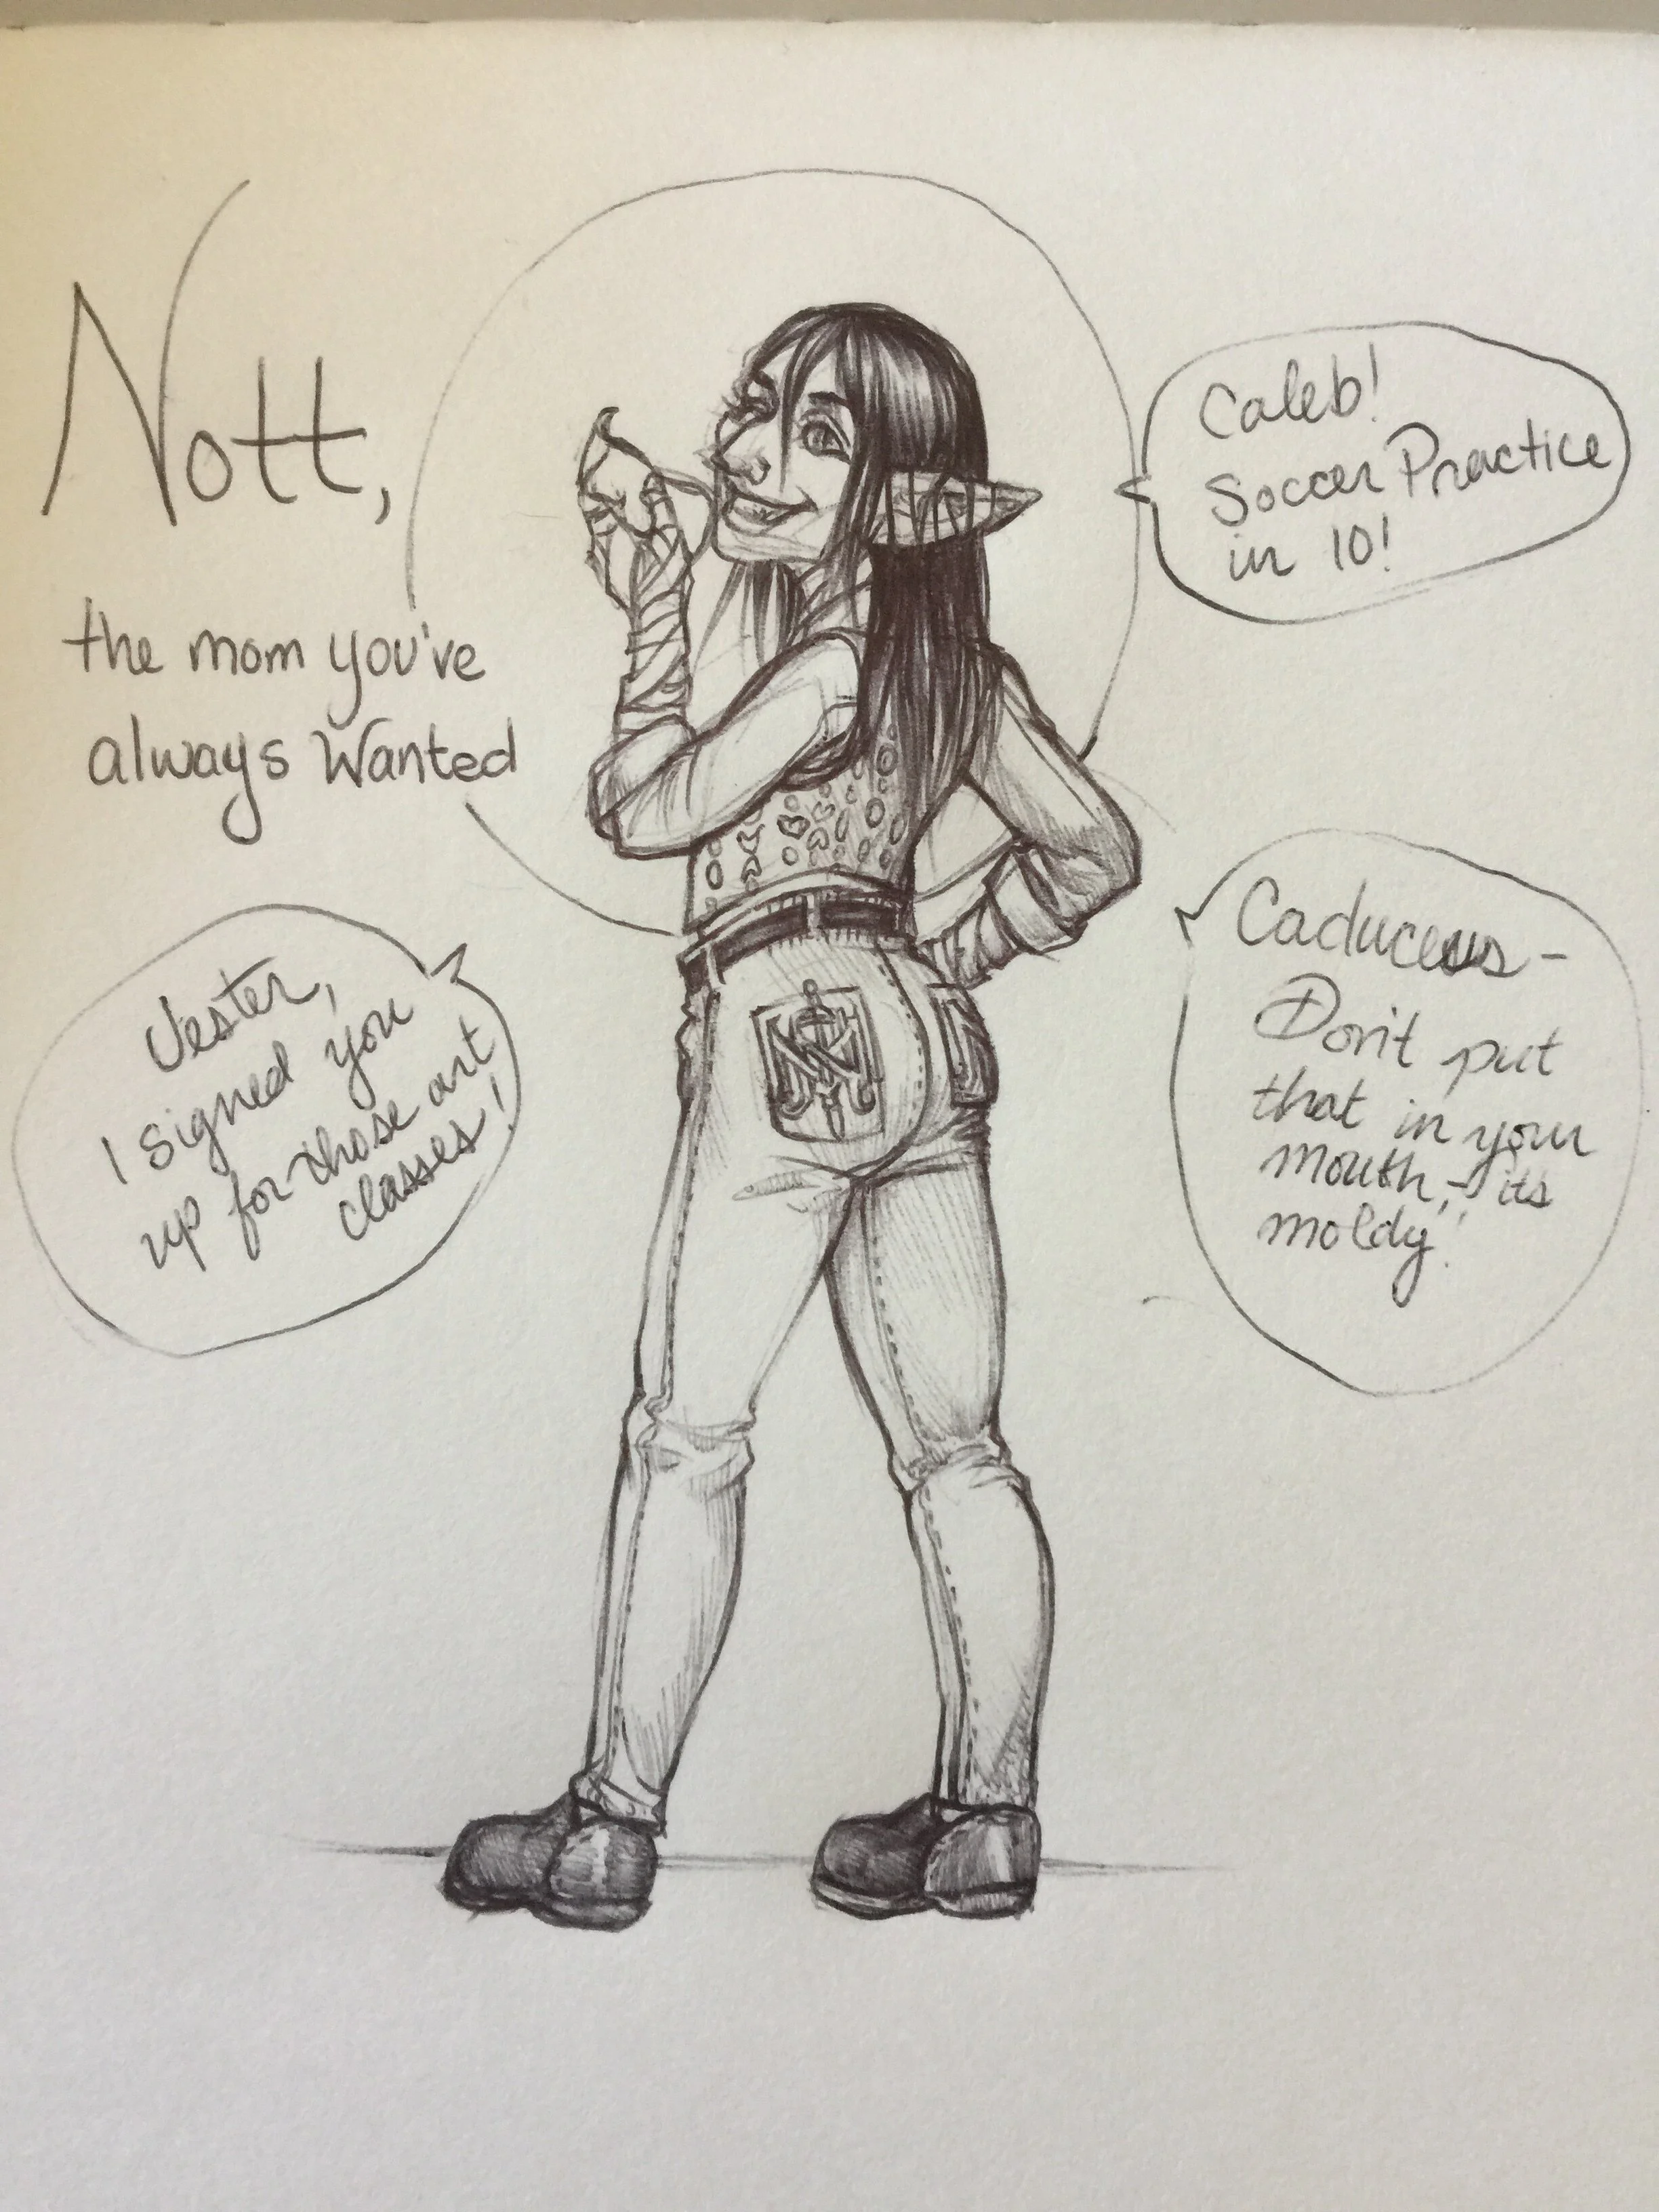 Nott,
the mom you've
always Wanted
Caleb!
Soccer Practice
in 10!
Jester,
I signed you
up for those art
classes!
Caduceus -
Don't put
that in your
mouth, - its
moldy!!